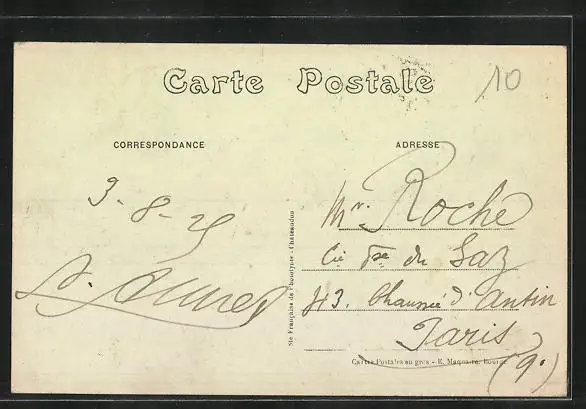 Carte Postale
10
CORRESPONDANCE
ADRESSE
9-8-25
Mr. Roche
Cie Fse du Gaz
43. Chaussée d'Antin
Paris
(9e)
Sté Française de Phototypie - Chateaudun
Cartes Postales en gros - E. Maquaire,